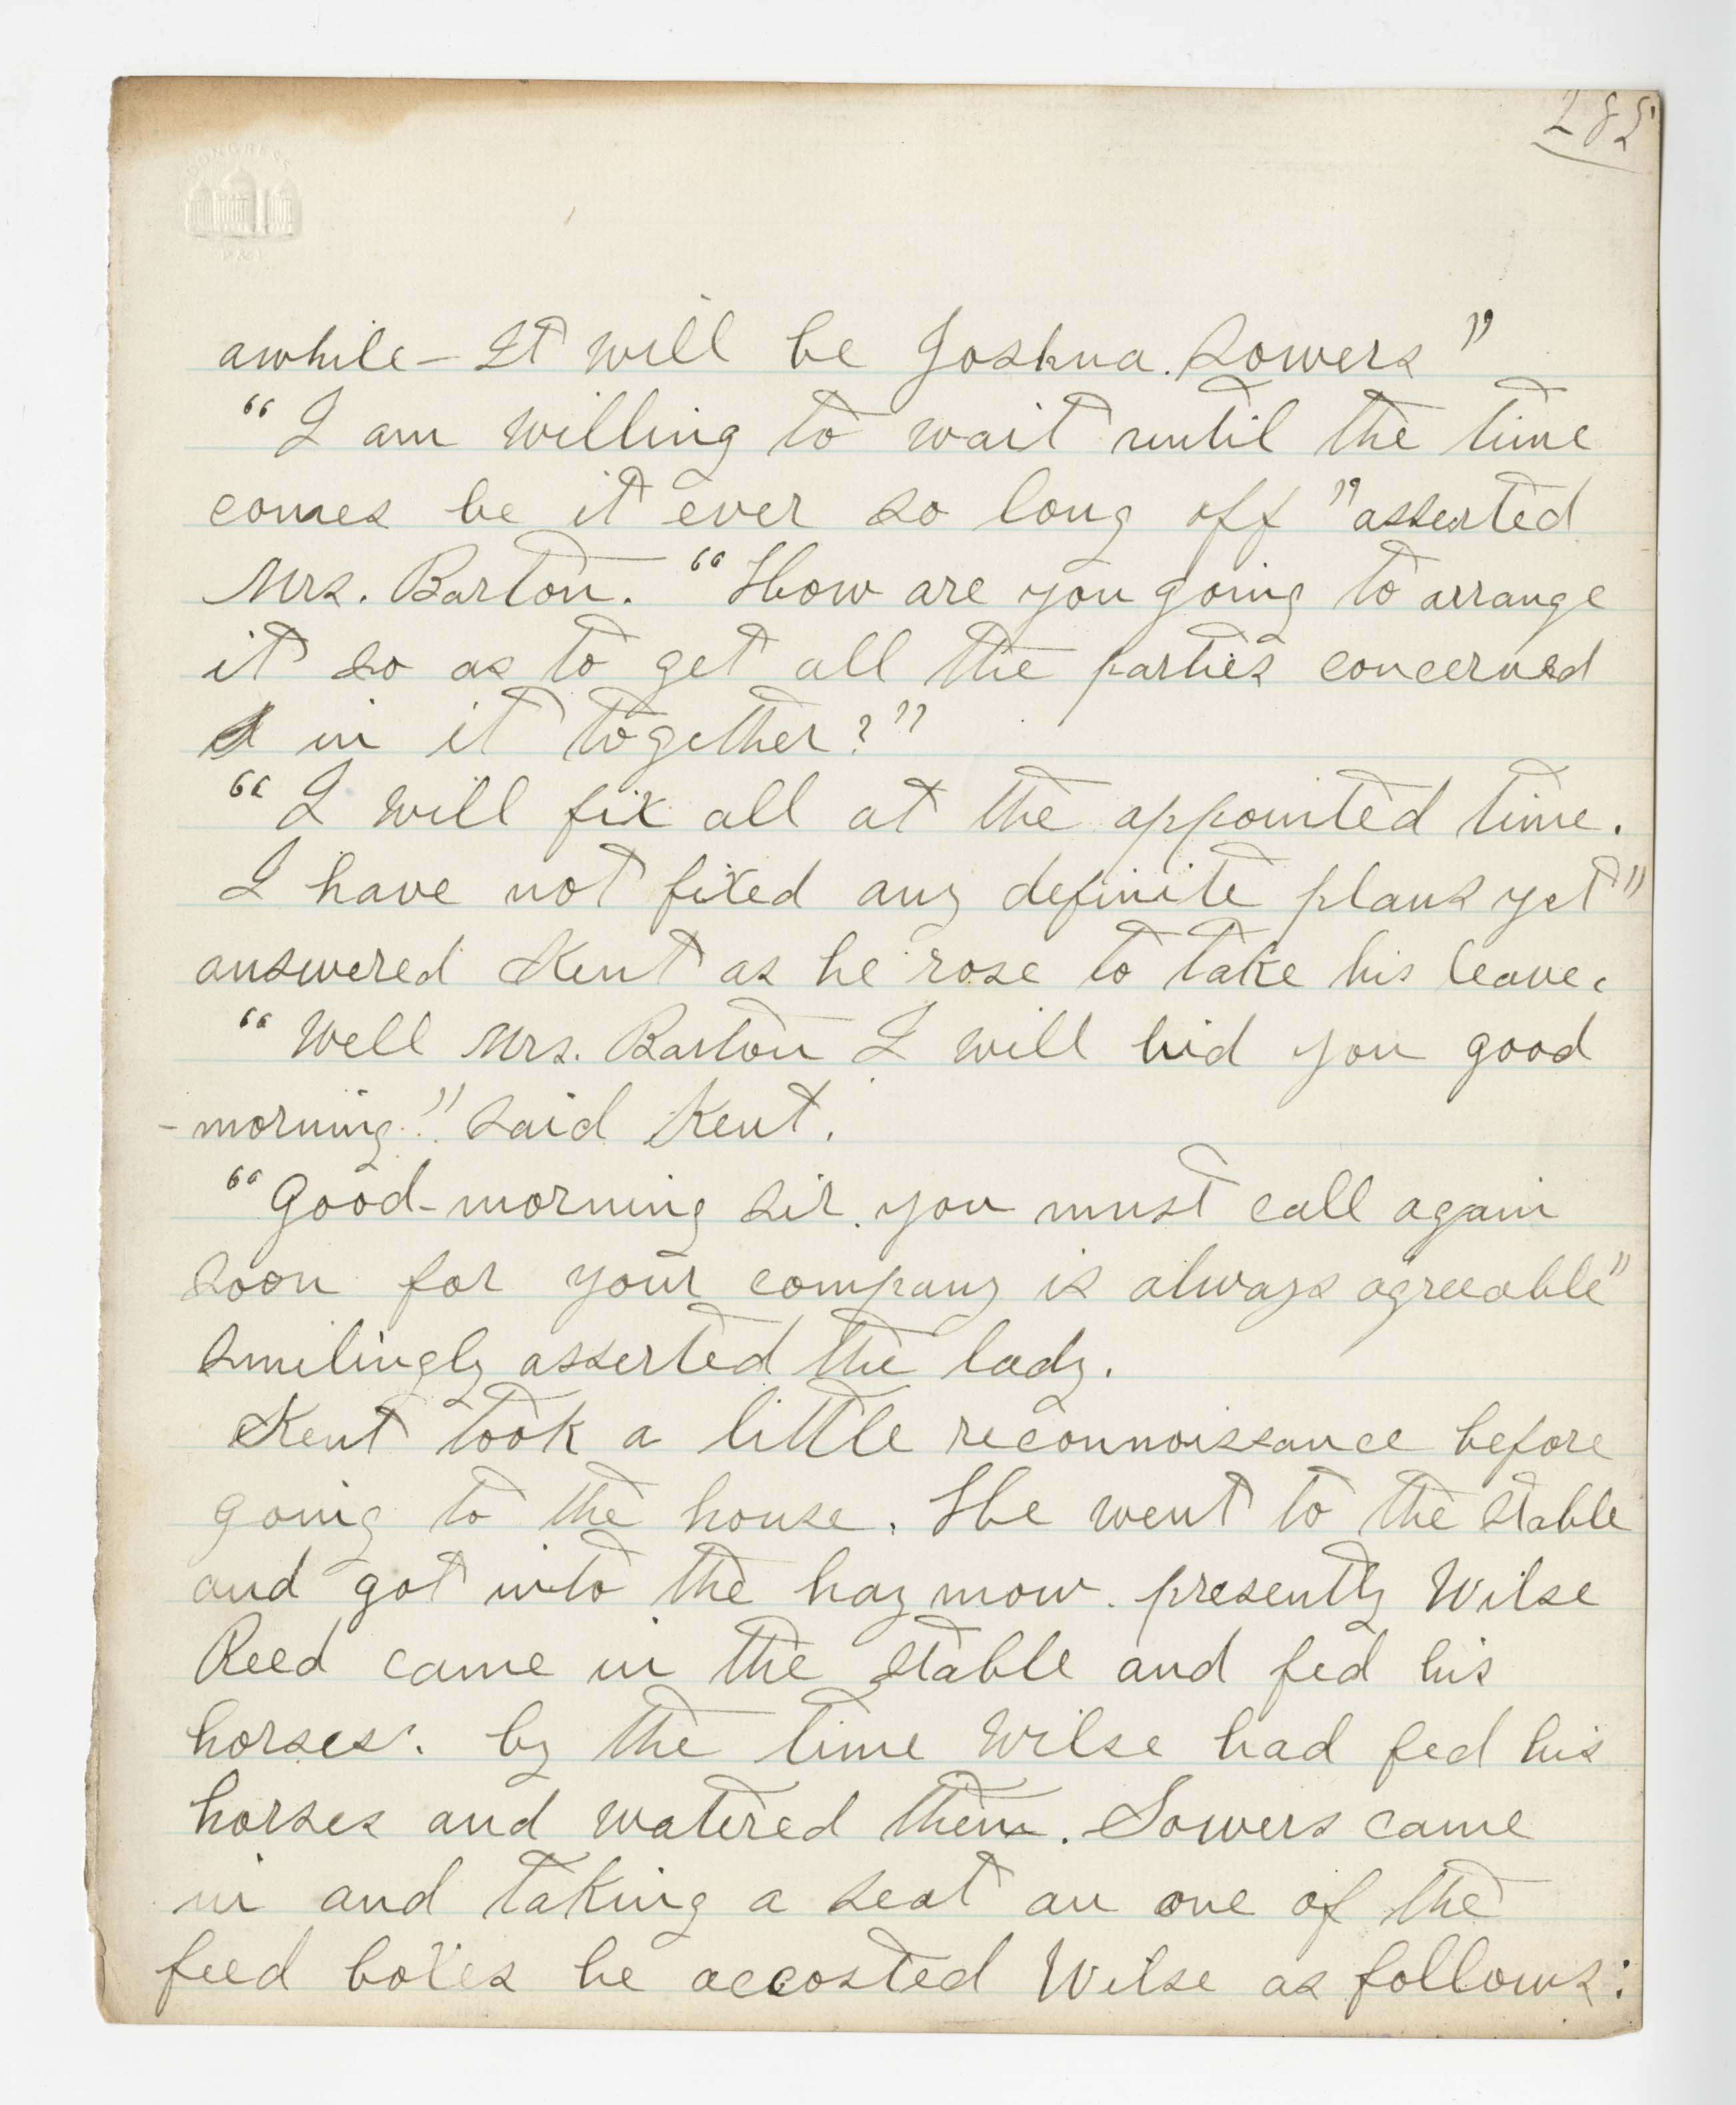 285
CONGRESS
P & P
awhile – It will be Joshua. Sowers"
"I am willing to wait until the time
comes be it ever so long off" asserted
Mrs. Barton. "How are you going to arrange
it so as to get all the parties concerned
in it together?"
"I will fix all at the appointed time.
I have not fixed any definite plans yet"
answered Kent as he rose to take his leave.
"Well Mrs. Barton I will bid you good
-morning." said Kent.
"Good-morning sir. you must call again
soon for your company is always agreeable"
smilingly asserted the lady.
Kent took a little reconnoissance before
going to the house. He went to the stable
and got into the hay mow. presently Wilse
Reed came in the stable and fed his
horses. by the time Wilse had fed his
horses and watered them. Sowers came
in and taking a seat an one of the
feed boxes he accosted Wilse as follows: